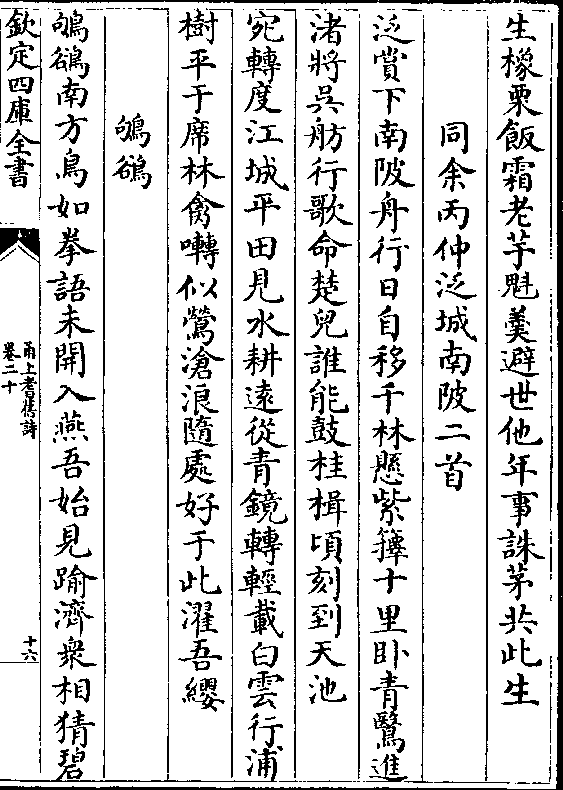 生橡栗飯霜老芋魁羹避世他年事誅茅共此生
同余丙仲泛城南陂二首
泛賞下南陂舟行日自移千林懸紫籜十里卧青鷖進
渚將吳舫行歌命楚兒誰能鼓桂楫頃刻到天池
宛轉度江城平田見水耕遠從青鏡轉輕載白雲行浦
樹平于席林禽囀似鶯滄浪隨處好于此濯吾纓
鴝鵒
鴝鵒南方鳥如拳語未開入燕吾始見踰濟衆相猜碧
欽定四庫全書
甬上耆舊詩
卷二十
十六